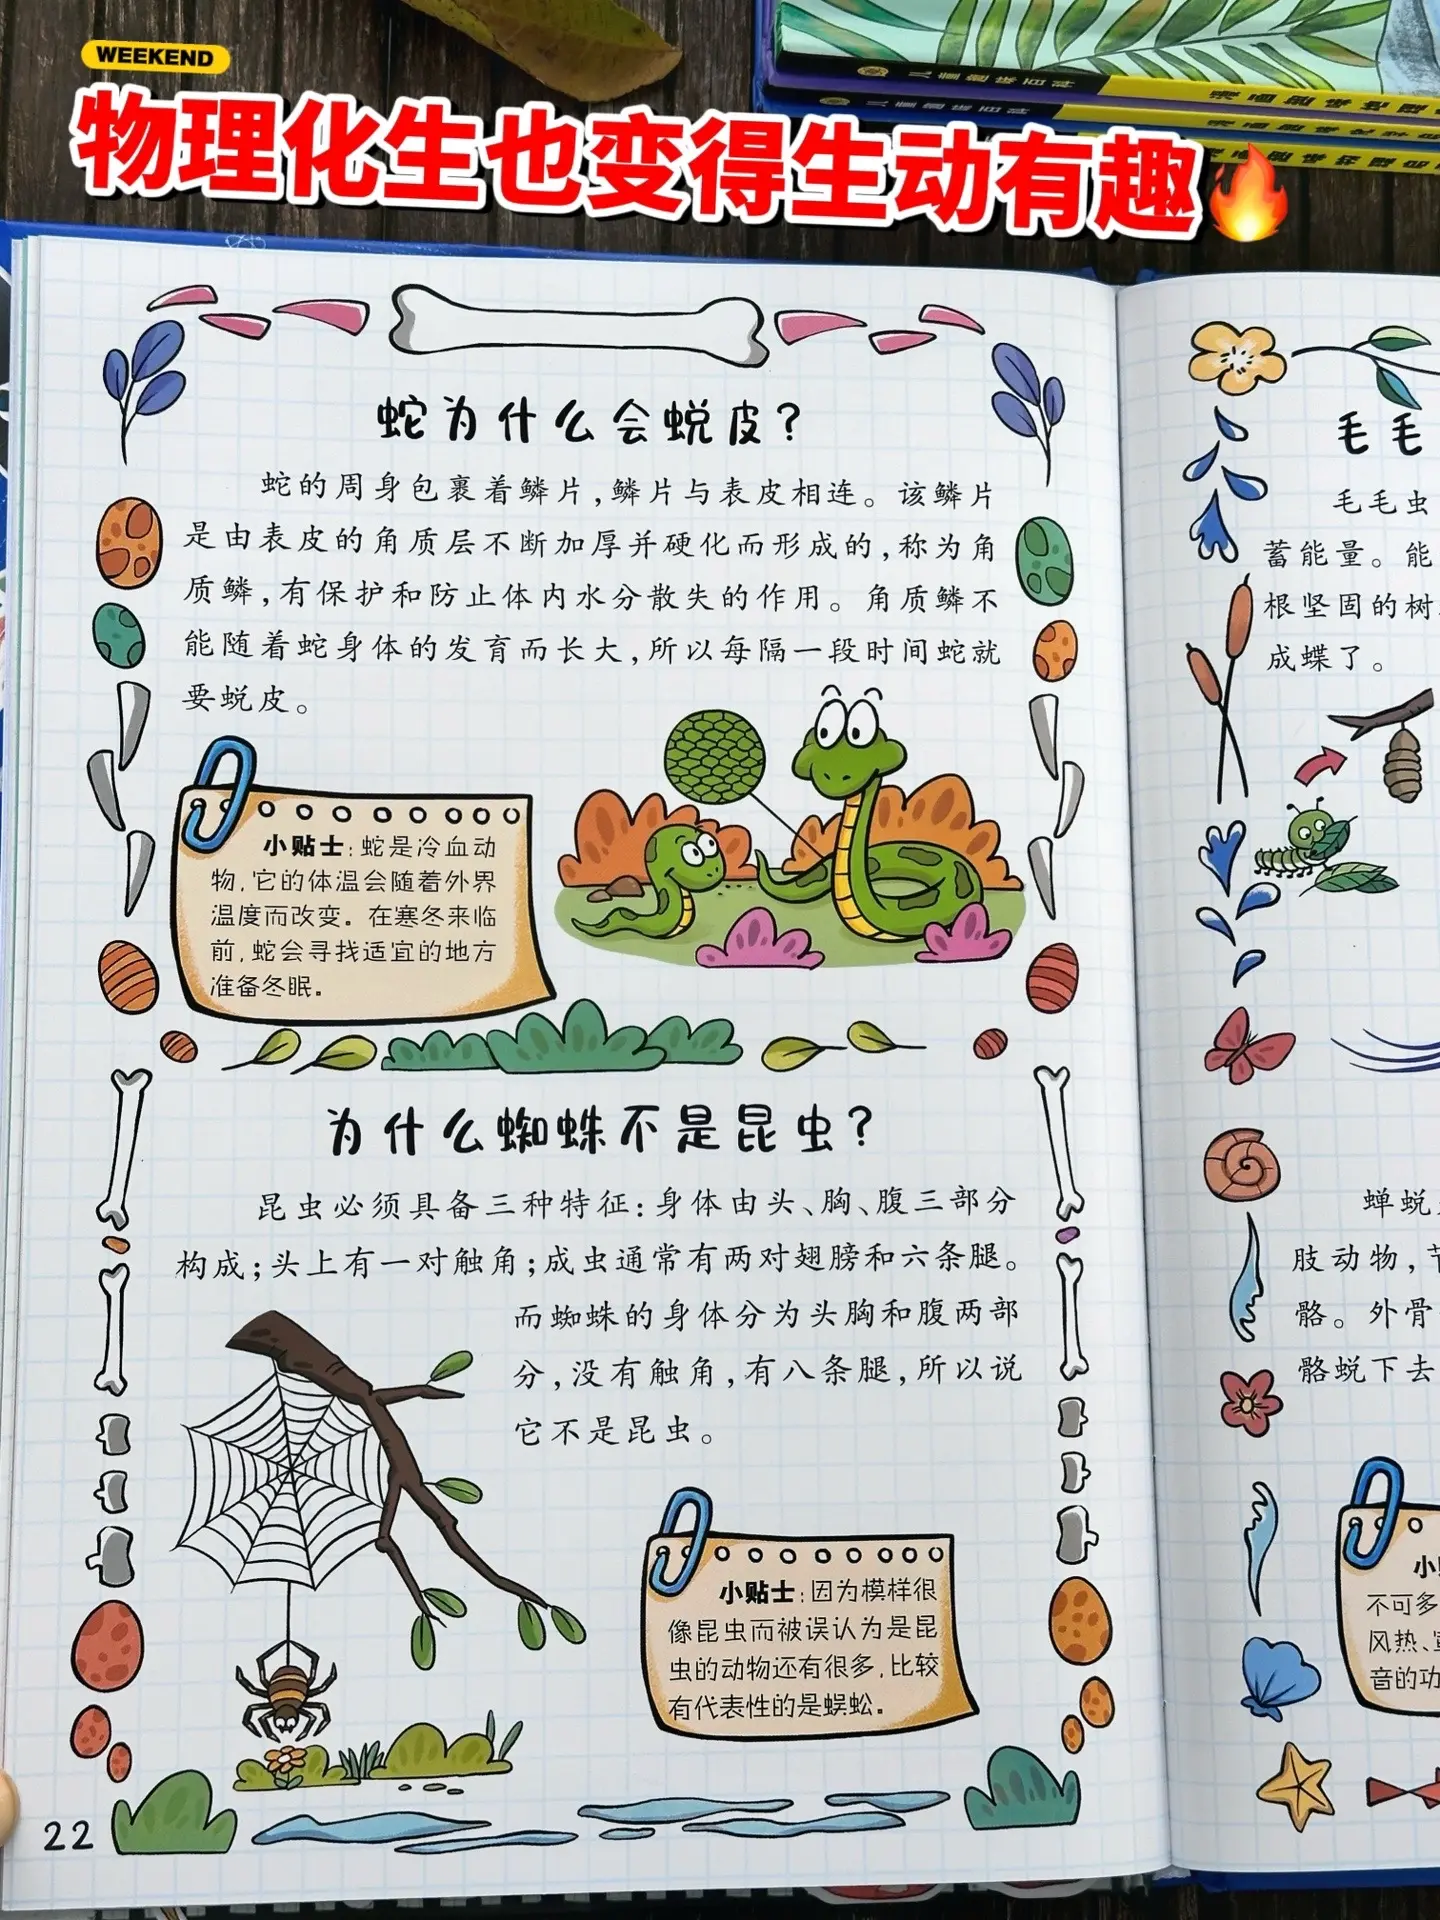 WEEKEND
物理化生也变得生动有趣🔥
蛇为什么会蜕皮?
蛇的周身包裹着鳞片,鳞片与表皮相连。该鳞片
是由表皮的角质层不断加厚并硬化而形成的,称为角
质鳞,有保护和防止体内水分散失的作用。角质鳞不
能随着蛇身体的发育而长大,所以每隔一段时间蛇就
要蜕皮。
小贴士:蛇是冷血动
物,它的体温会随着外界
温度而改变。在寒冬来临
前,蛇会寻找适宜的地方
准备冬眠。
为什么蜘蛛不是昆虫?
昆虫必须具备三种特征:身体由头、胸、腹三部分
构成;头上有一对触角;成虫通常有两对翅膀和六条腿。
而蜘蛛的身体分为头胸和腹两部
分,没有触角,有八条腿,所以说
它不是昆虫。
小贴士:因为模样很
像昆虫而被误认为是昆
虫的动物还有很多,比较
有代表性的是蜈蚣。
22
毛毛
毛毛虫
蓄能量。能
根坚固的树
成蝶了。
蝉蜕
肢动物,节
骼。外骨
骼蜕下去
小
不可多
风热、
音的功